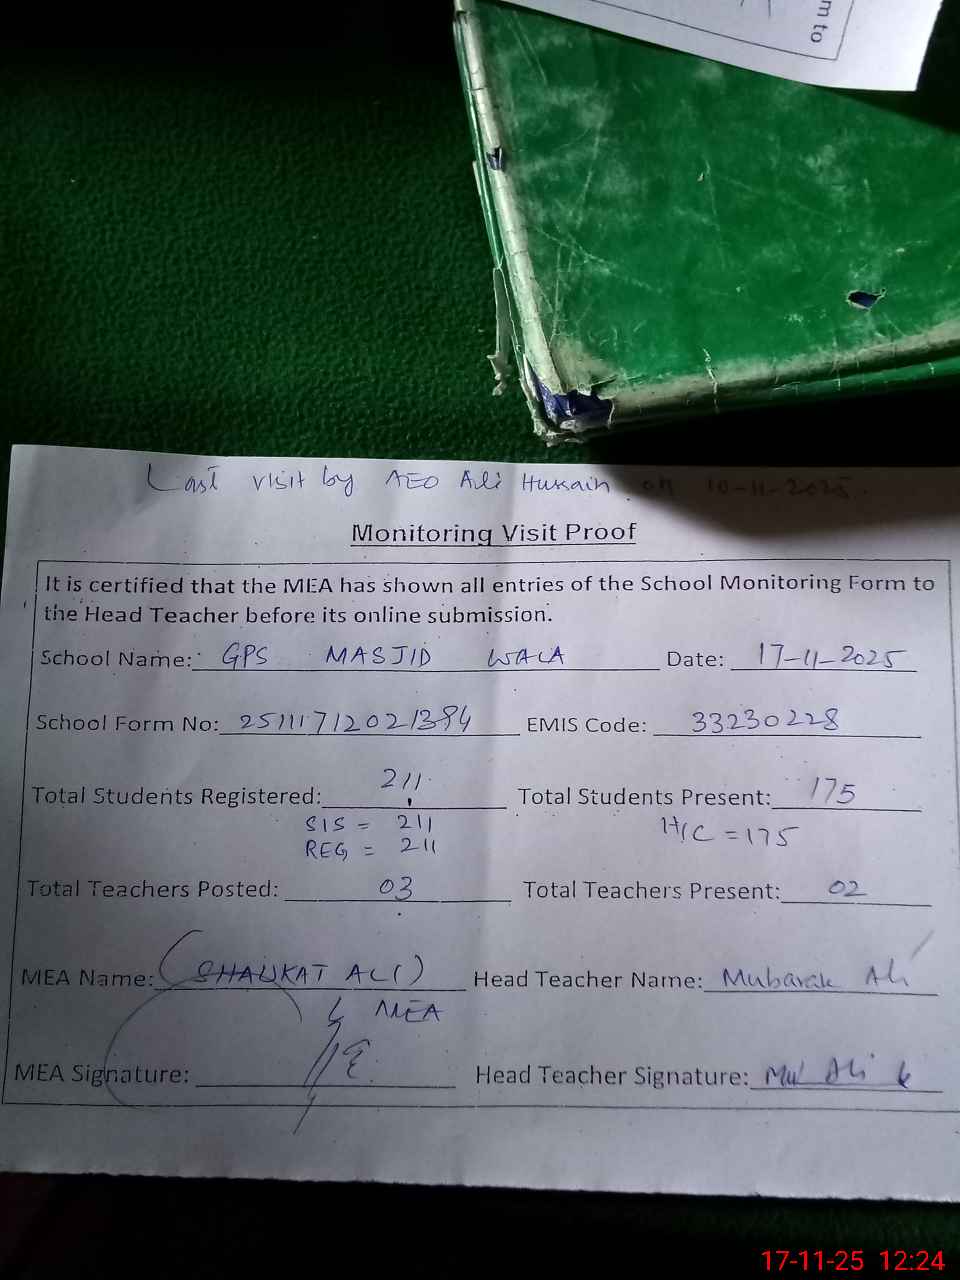 m to
Last visit by AEO Ali Hussain on 10-11-2025.
Monitoring Visit Proof
It is certified that the MEA has shown all entries of the School Monitoring Form to
the Head Teacher before its online submission.
School Name: GPS MASJID WALA Date: 17-11-2025
School Form No: 25111712021384 EMIS Code: 33230228
Total Students Registered: 211 Total Students Present: 175
SIS = 211 H/C = 175
REG = 211
Total Teachers Posted: 03 Total Teachers Present: 02
MEA Name: (SHAUKAT ALI) Head Teacher Name: Mubarak Ali
MEA
MEA Signature: Head Teacher Signature: Ali
17-11-25 12:24